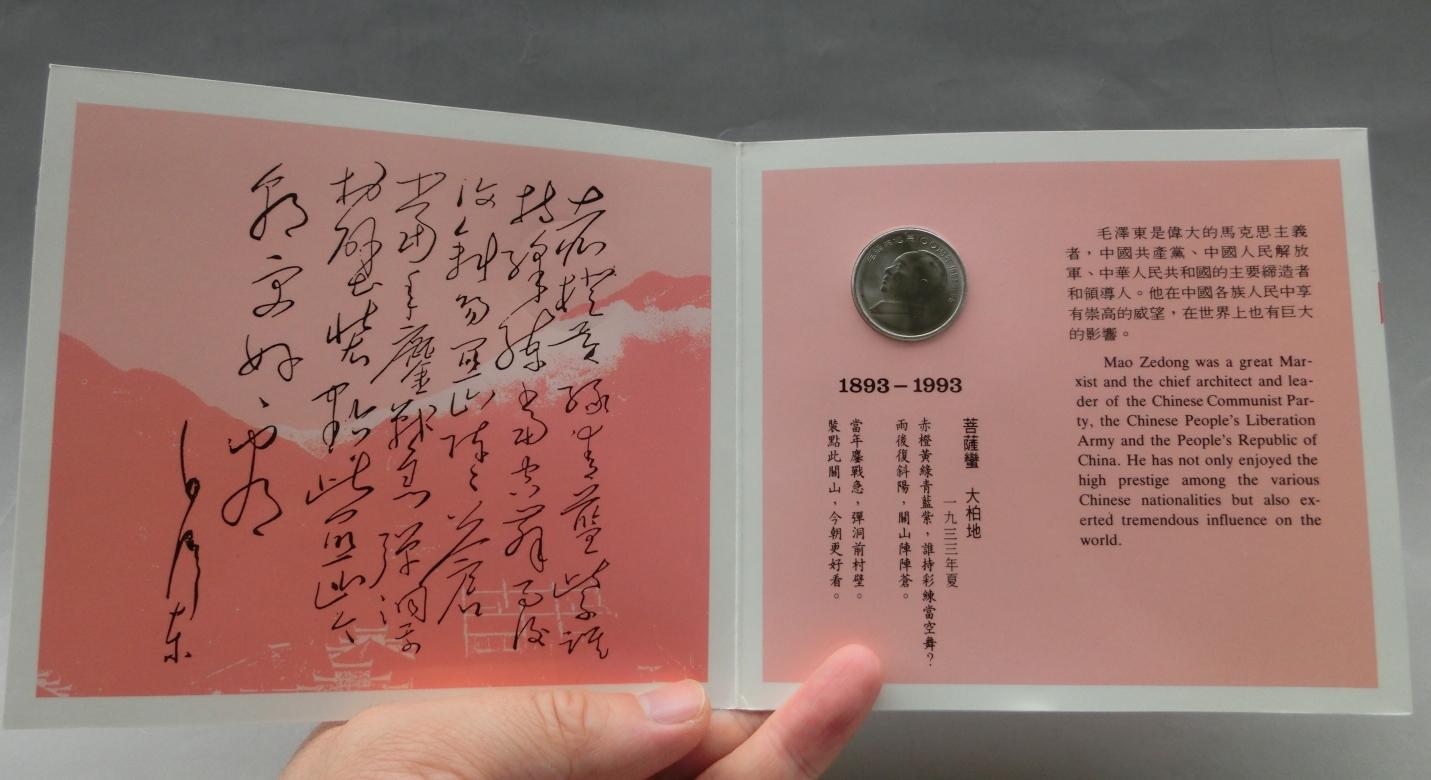 赤橙黃綠青藍紫誰
持彩練當空舞雨後
復斜陽關山陣陣蒼
當年鏖戰急彈洞前
村壁裝點此關山今
朝更好看
毛澤東
1893－1993
菩薩蠻　大柏地
一九三三年夏
赤橙黃綠青藍紫，誰持彩練當空舞？
雨後復斜陽，關山陣陣蒼。
當年鏖戰急，彈洞前村壁。
裝點此關山，今朝更好看。
毛澤東是偉大的馬克思主義
者，中國共產黨、中國人民解放
軍、中華人民共和國的主要締造者
和領導人。他在中國各族人民中享
有崇高的威望，在世界上也有巨大
的影響。
Mao Zedong was a great Mar-
xist and the chief architect and lea-
der of the Chinese Communist Par-
ty, the Chinese People's Liberation
Army and the People's Republic of
China. He has not only enjoyed the
high prestige among the various
Chinese nationalities but also ex-
erted tremendous influence on the
world.